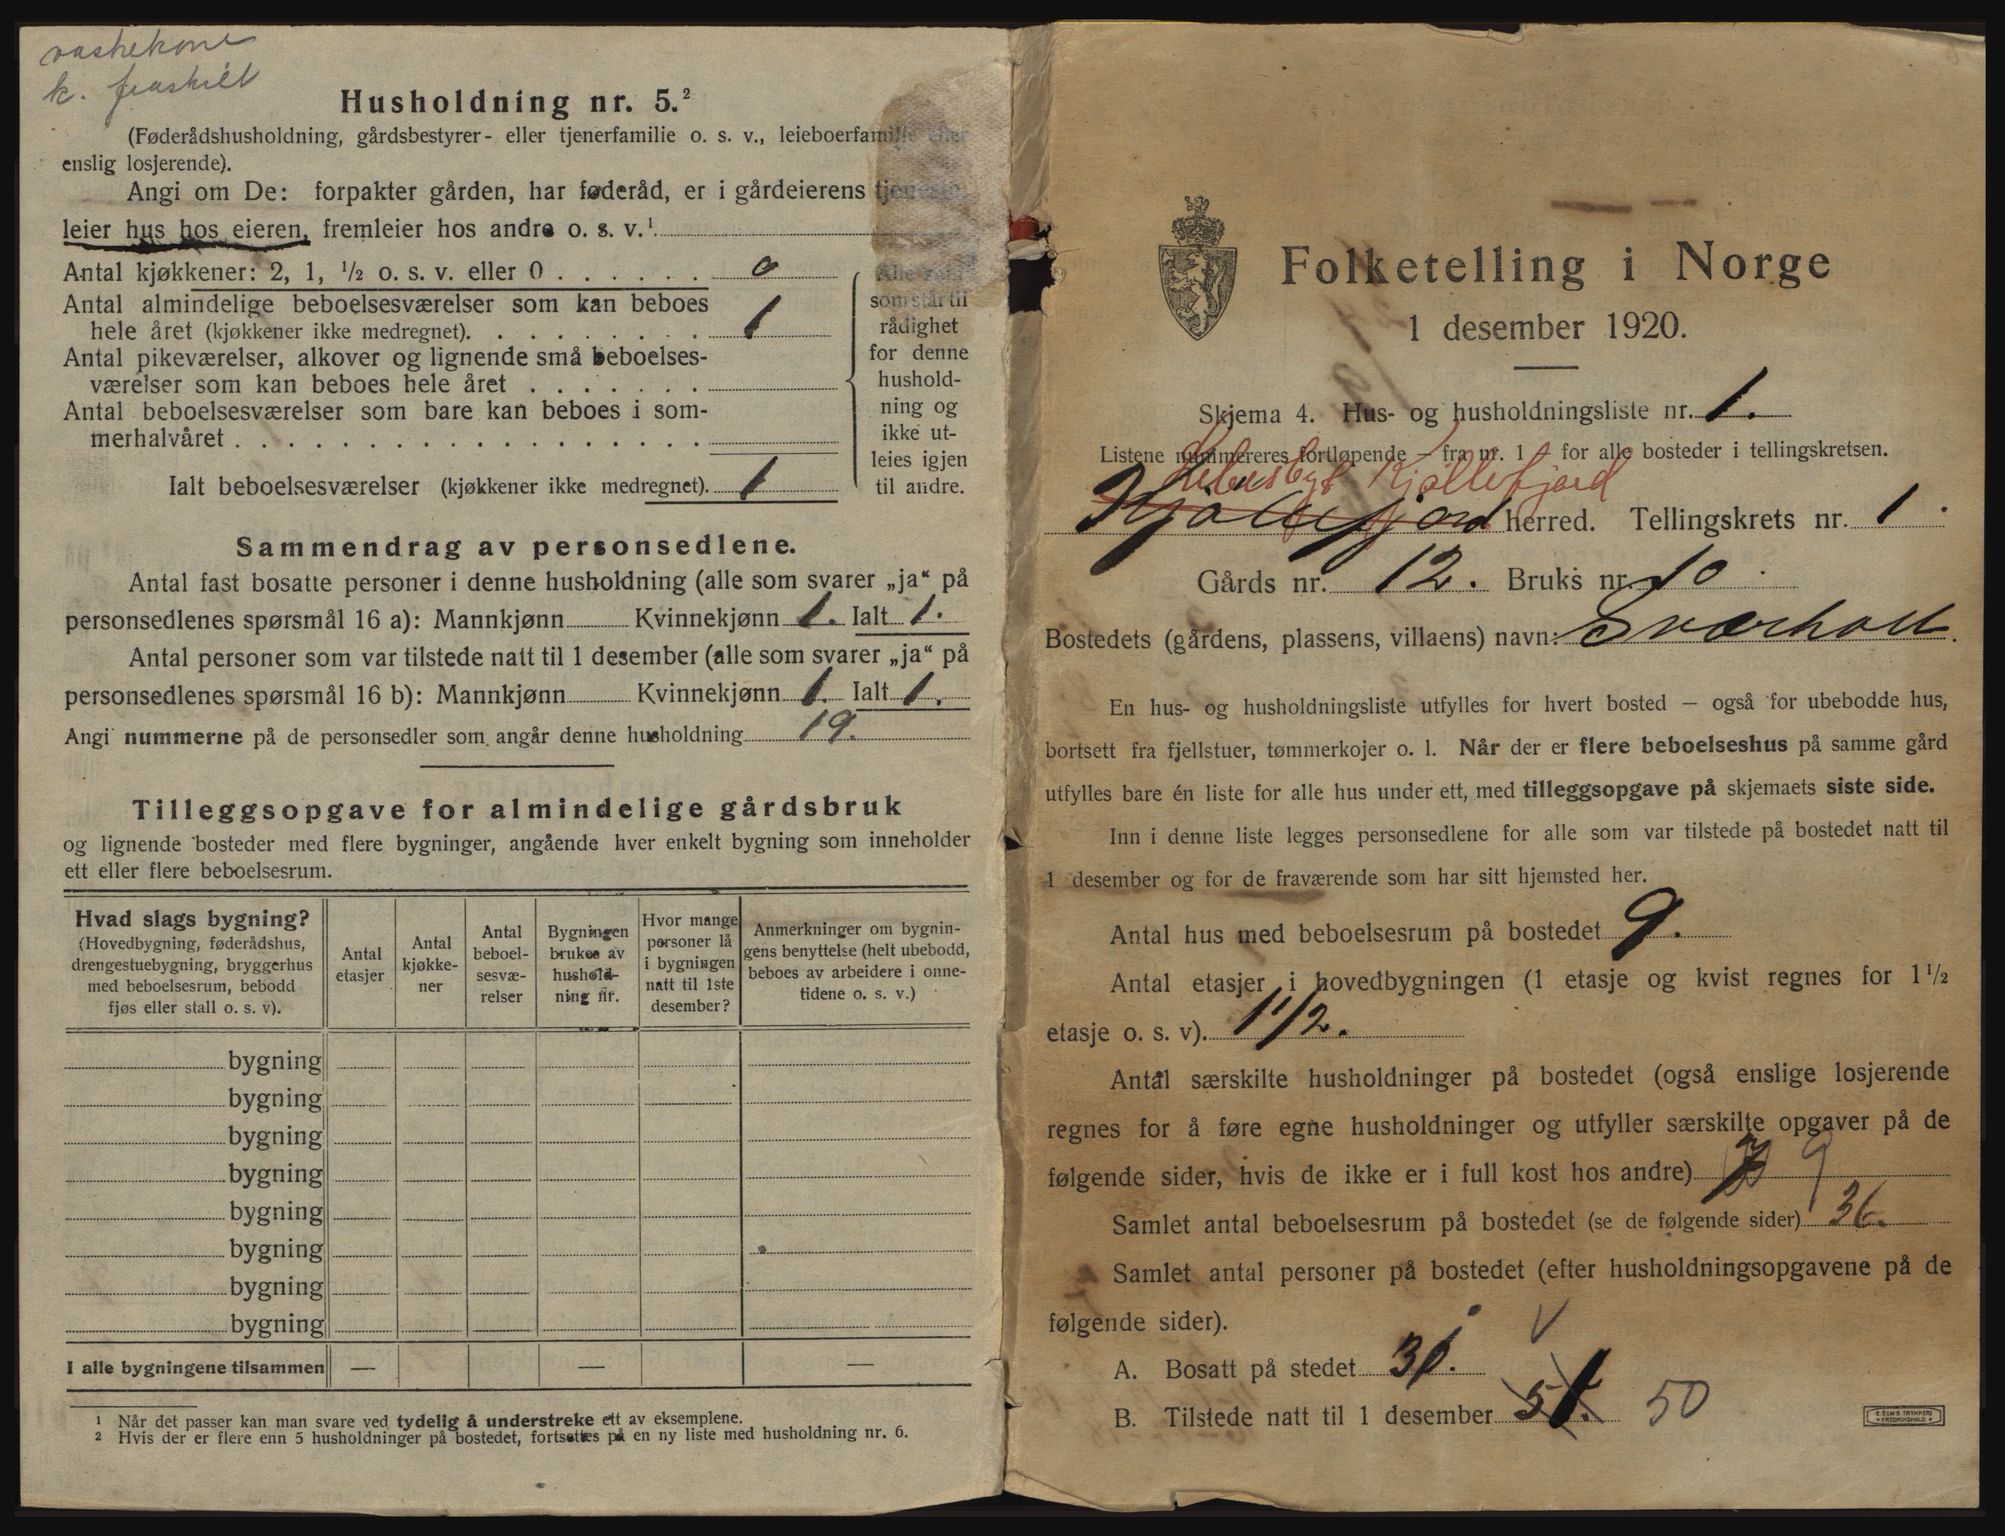 vaskekone
k. fraskilt
Husholdning nr. 5.²
(Føderådshusholdning, gårdsbestyrer- eller tjenerfamilie o. s. v., leieboerfamilie eller
enslig losjerende).
Angi om De: forpakter gården, har føderåd, er i gårdeierens tjeneste,
leier hus hos eieren, fremleier hos andre o. s. v.¹
Antal kjøkkener: 2, 1, ½ o. s. v. eller 0 . . . . . . 0
Antal almindelige beboelsesværelser som kan beboes
hele året (kjøkkener ikke medregnet). . . . . . . . . 1
Antal pikeværelser, alkover og lignende små beboelses-
værelser som kan beboes hele året . . . . . . .
Antal beboelsesværelser som bare kan beboes i som-
merhalvåret . . . . . . . . . . . . . . . . . .
Ialt beboelsesværelser (kjøkkener ikke medregnet). 1
Alle rum
som står til
rådighet
for denne
hushold-
ning og
ikke ut-
leies igjen
til andre.
Sammendrag av personsedlene.
Antal fast bosatte personer i denne husholdning (alle som svarer „ja“ på
personsedlenes spørsmål 16 a): Mannkjønn Kvinnekjønn 1. Ialt 1.
Antal personer som var tilstede natt til 1 desember (alle som svarer „ja“ på
personsedlenes spørsmål 16 b): Mannkjønn Kvinnekjønn 1. Ialt 1.
Angi nummerne på de personsedler som angår denne husholdning 19.
Tilleggsopgave for almindelige gårdsbruk
og lignende bosteder med flere bygninger, angående hver enkelt bygning som inneholder
ett eller flere beboelsesrum.
Hvad slags bygning?
(Hovedbygning, føderådshus,
drengestuebygning, bryggerhus
med beboelsesrum, bebodd
fjøs eller stall o. s. v).
Antal
etasjer
Antal
kjøkke-
ner
Antal
beboel-
sesvæ-
relser
Bygningen
brukes av
hushold-
ning nr.
Hvor mange
personer lå
i bygningen
natt til 1ste
desember?
Anmerkninger om bygnin-
gens benyttelse (helt ubebodd,
beboes av arbeidere i onne-
tidene o. s. v.)
bygning
bygning
bygning
bygning
bygning
bygning
bygning
bygning
I alle bygningene tilsammen — — —
¹ Når det passer kan man svare ved tydelig å understreke ett av eksemplene.
² Hvis der er flere enn 5 husholdninger på bostedet, fortsettes på en ny liste med husholdning nr. 6.
Folketelling i Norge
1 desember 1920.
Skjema 4. Hus- og husholdningsliste nr. 1.
Listene nummereres fortløpende — fra nr. 1 — for alle bosteder i tellingskretsen.
Lebesby Kjøllefjord
Kjøllefjord herred. Tellingskrets nr. 1.
Gårds nr. 12. Bruks nr. 10.
Bostedets (gårdens, plassens, villaens) navn: Sværholt.
En hus- og husholdningsliste utfylles for hvert bosted — også for ubebodde hus,
bortsett fra fjellstuer, tømmerkojer o. l. Når der er flere beboelseshus på samme gård
utfylles bare én liste for alle hus under ett, med tilleggsopgave på skjemaets siste side.
Inn i denne liste legges personsedlene for alle som var tilstede på bostedet natt til
1 desember og for de fraværende som har sitt hjemsted her.
Antal hus med beboelsesrum på bostedet 9.
Antal etasjer i hovedbygningen (1 etasje og kvist regnes for 1½
etasje o. s. v). 1 1/2.
Antal særskilte husholdninger på bostedet (også enslige losjerende
regnes for å føre egne husholdninger og utfyller særskilte opgaver på de
følgende sider, hvis de ikke er i full kost hos andre) 9
Samlet antal beboelsesrum på bostedet (se de følgende sider) 36.
Samlet antal personer på bostedet (efter husholdningsopgavene på de
følgende sider).
A. Bosatt på stedet 31.
B. Tilstede natt til 1 desember 51. 50